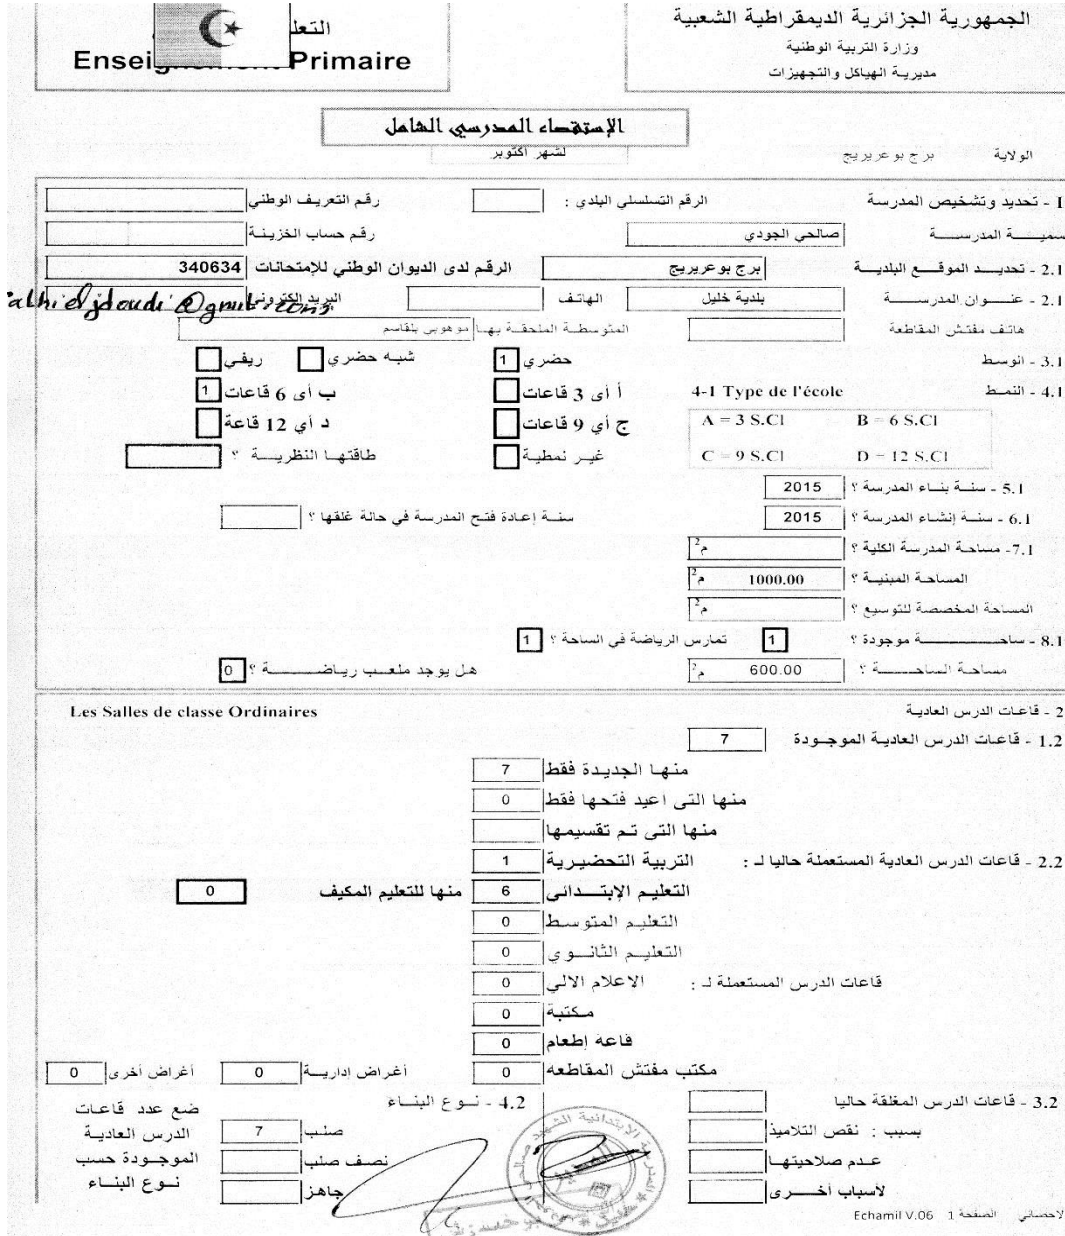 الجمهورية الجزائرية الديمقراطية الشعبية
وزارة التربية الوطنية
مديرية الهياكل والتجهيزات
التعل
Enseignement Primaire
الإستقصاء المدرسي الشامل
لشهر اكتوبر
الولاية برج بوعريريج
1 - تحديد وتشخيص المدرسة الرقم التسلسلي البلدي : رقم التعريف الوطني
سميـــة المدرســـة صالحي الجودي رقم حساب الخزينة
2.1 - تحديـــد الموقـــع البلديـــة برج بوعريريج الرقم لدى الديوان الوطني للإمتحانات 340634
2.1 - عنـــوان المدرســـة بلدية خليل الهاتف البريد الكتروني
هاتف مفتش المقاطعة المتوسطة الملحقة بها موهوبي بلقاسم
3.1 - الوسط حضري 1 شبه حضري ريفي
4.1 - النمـط 4-1 Type de l'école أ أى 3 قاعات ب أى 6 قاعات 1
A = 3 S.Cl B = 6 S.Cl ج أي 9 قاعات د أي 12 قاعة
C = 9 S.Cl D = 12 S.Cl غير نمطية طاقتها النظريـــة ؟
5.1 - سنـة بنـاء المدرسة ؟ 2015
6.1 - سنـة إنشـاء المدرسة ؟ 2015 سنـة إعادة فتـح المدرسة في حالة غلقها ؟
7.1- مساحة المدرسة الكلية ؟ م2
المساحة المبنية ؟ 1000.00 م2
المساحة المخصصة للتوسيع ؟ م2
8.1 - ساحـــــــة موجودة ؟ 1 تمارس الرياضة في الساحة ؟ 1
مساحـة الساحـــــة ؟ 600.00 م2 هل يوجد ملعـب رياضـــــــة ؟ 0
2 - قاعـات الدرس العاديـة Les Salles de classe Ordinaires
1.2 - قاعـات الدرس العاديـة الموجـودة 7
منهـا الجديـدة فقط 7
منها التى اعيد فتحها فقط 0
منها التى تـم تقسيمها
2.2 - قاعات الدرس العادية المستعملة حاليا لـ : التربية التحضيرية 1
التعليـم الإبتـــدائى 6 منها للتعليم المكيف 0
التعليـم المتوسـط 0
التعليـم الثانـــوي 0
قاعات الدرس المستعملة لـ : الاعلام الالي 0
مكتبة 0
قاعة إطعام 0
مكتب مفتش المقاطعه 0 أغراض إداريـــة 0 أغراض أخرى 0
3.2 - قاعات الدرس المغلقة حاليا 4.2 - نـــوع البنـاء ضع عدد قاعـات
بسبب : نقص التلاميذ صلـب 7 الدرس العاديـة
عـدم صلاحيتهـا نصف صلب الموجـودة حسب
لأسباب أخـــرى جاهز نـــوع البنـاء
الاحصائي الصفحة 1 Echamil V.06